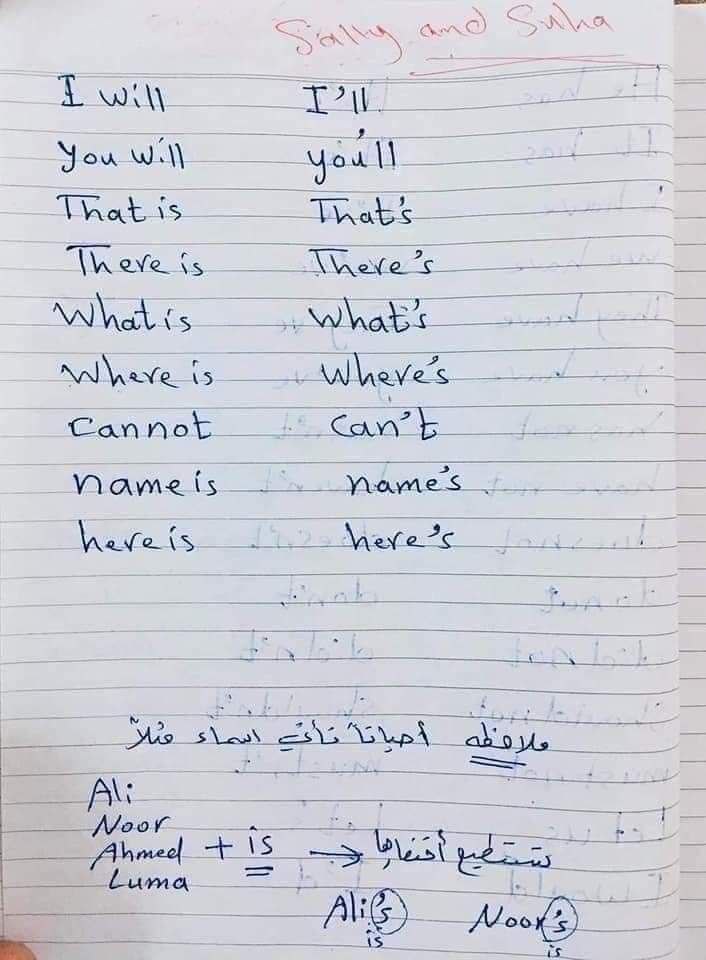 Sally and Suha
I will I'll
You will you'll
That is That's
There is There's
What is What's
Where is Where's
Cannot Can't
name is name's
here is here's
ملاحظه أحياناً تأتي اسماء مثلاً
Ali
Noor
Ahmed + is → نستطيع أختصارها
Luma
Ali's Noor's
is is